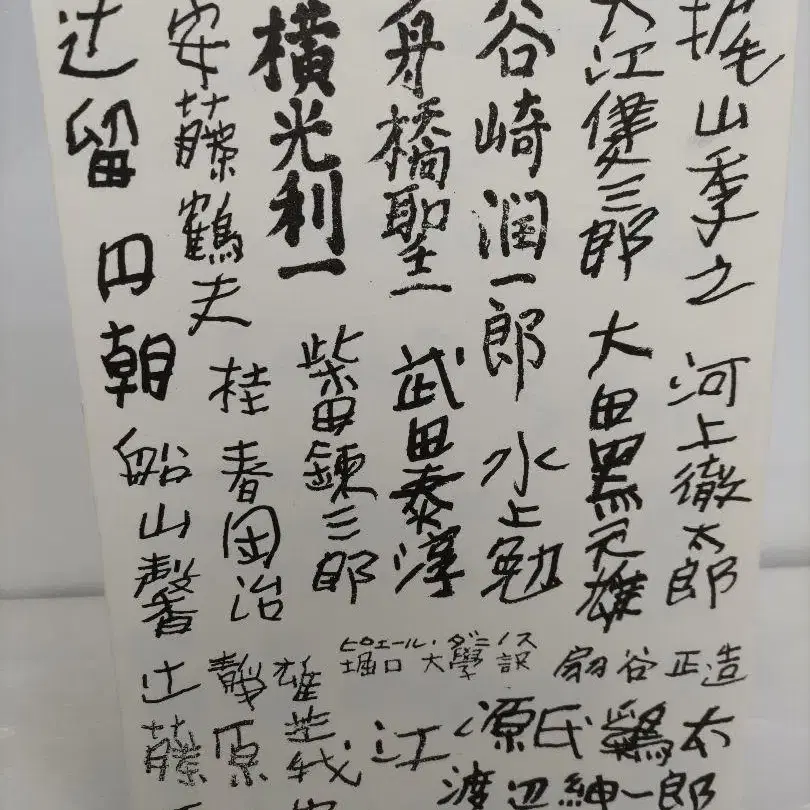 梶山季之 河上徹太郎
大江健三郎 大田黒元雄
谷崎潤一郎 水上勉
舟橋聖一 武田泰淳
横光利一 柴田錬三郎
安藤鶴夫 桂春団治
辻留 円朝 船山馨
ピエール・ダニノス
堀口大學訳
扇谷正造
辻静雄
源氏鶏太
藤原義江
渡辺紳一郎